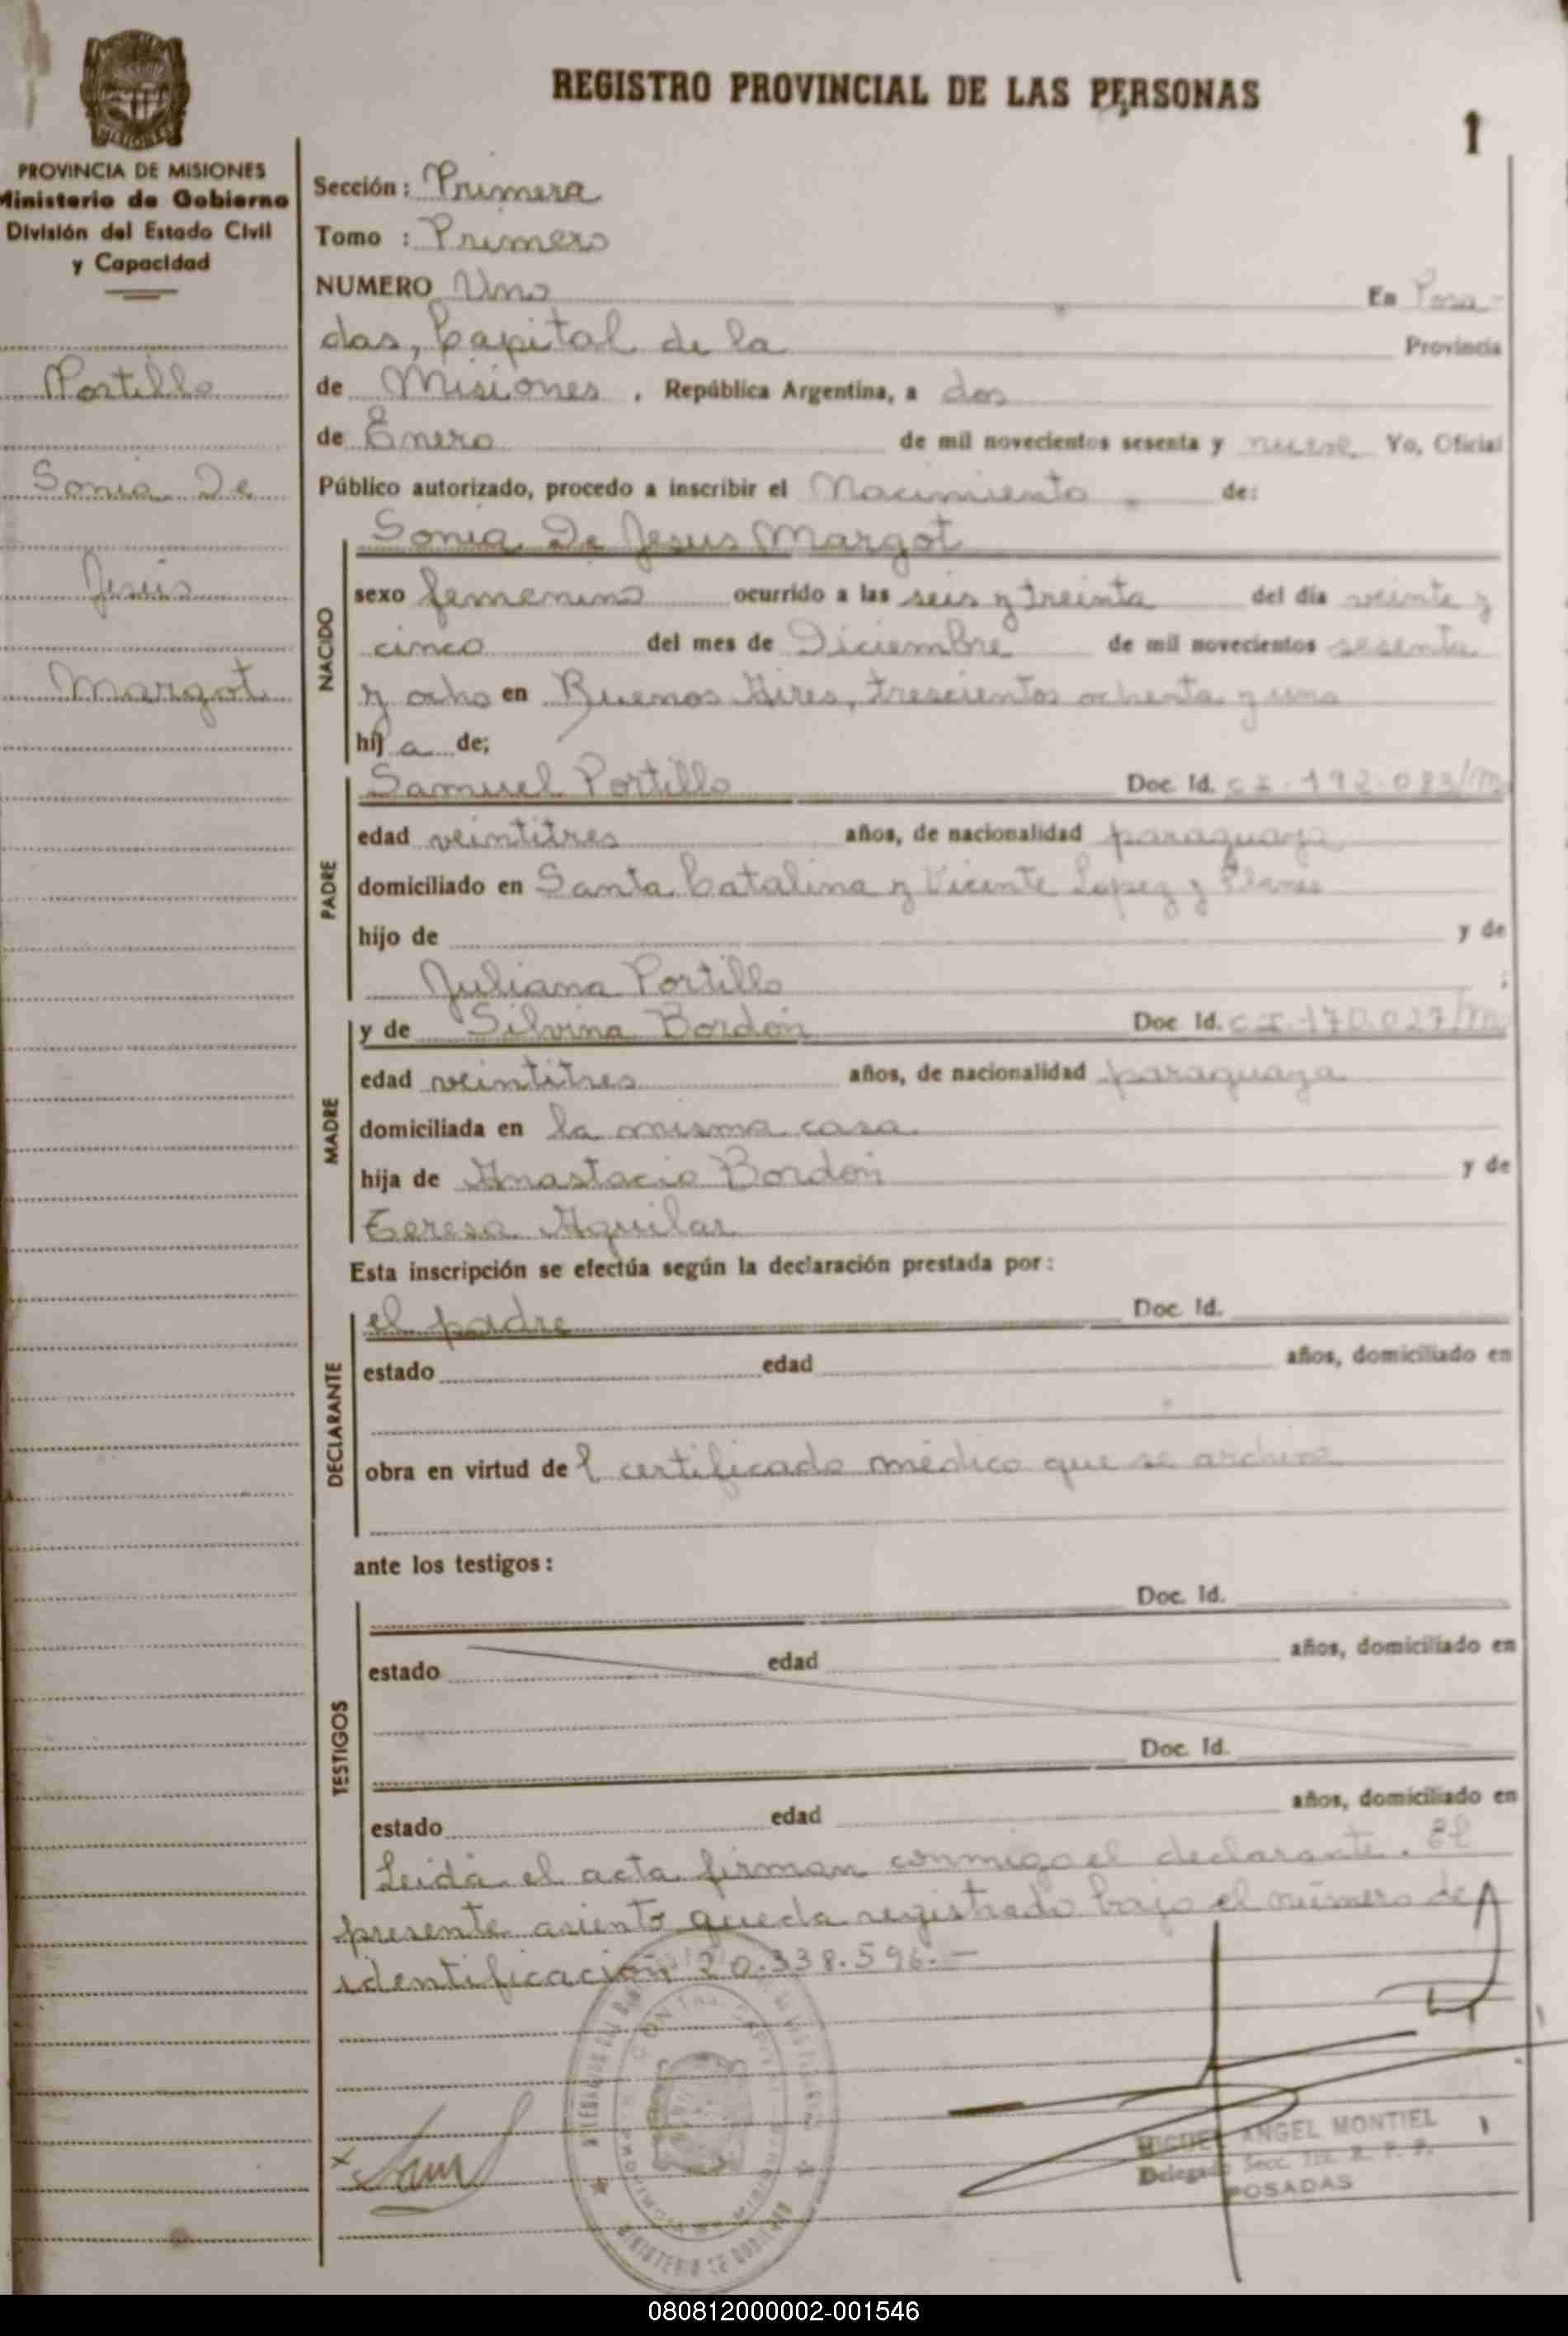 REGISTRO PROVINCIAL DE LAS PERSONAS
1
MISIONES
PROVINCIA DE MISIONES
Ministerio de Gobierno
División del Estado Civil
y Capacidad
Portillo
Sonia De
Jesús
Margot
Sección: Primera
Tomo : Primero
NUMERO Uno En Posa-
das, Capital de la Provincia
de Misiones, República Argentina, a dos
de Enero de mil novecientos sesenta y nueve Yo, Oficial
Público autorizado, procedo a inscribir el Nacimiento de:
NACIDO
Sonia De Jesus Margot
sexo femenino ocurrido a las seis y treinta del día veinte y
cinco del mes de Diciembre de mil novecientos sesenta
y ocho en Buenos Aires, trescientos ochenta y uno
hij a de;
PADRE
Samuel Portillo Doc. Id. C I. 192.083/M
edad veintitres años, de nacionalidad paraguaya
domiciliado en Santa Catalina y Vicente Lopez y Planes
hijo de y de
Juliana Portillo ;
MADRE
y de Silvina Bordón Doc Id. C I. 170.027/M
edad veintitres años, de nacionalidad paraguaya
domiciliada en la misma casa
hija de Anastacio Bordón y de
Teresa Aguilar
Esta inscripción se efectúa según la declaración prestada por:
DECLARANTE
el padre Doc. Id.
estado edad años, domiciliado en
obra en virtud de l certificado médico que se archiva
ante los testigos:
TESTIGOS
Doc. Id.
estado edad años, domiciliado en
Doc. Id.
estado edad años, domiciliado en
Leida el acta firman conmigo el declarante. El
presente asiento queda registrado bajo el número de
identificación 20.338.596.-
MINISTERIO DE GOBIERNO
MIGUEL ANGEL MONTIEL
Delegado Secc. R. P. P.
POSADAS
080812000002-001546